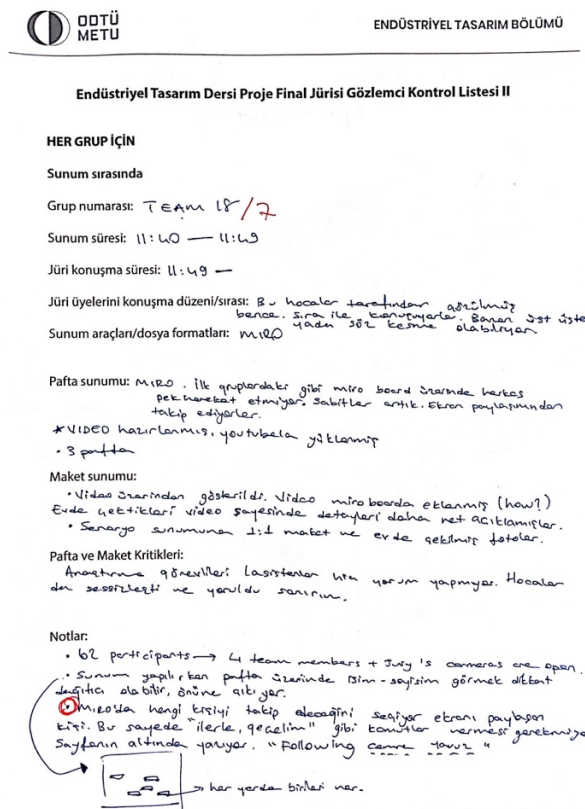 ODTÜ
METU
ENDÜSTRİYEL TASARIM BÖLÜMÜ
Endüstriyel Tasarım Dersi Proje Final Jürisi Gözlemci Kontrol Listesi II
HER GRUP İÇİN
Sunum sırasında
Grup numarası: TEAM 18/7
Sunum süresi: 11:40 — 11:49
Jüri konuşma süresi: 11:49 —
Jüri üyelerini konuşma düzeni/sırası: Bu hocalar tarafından çözülmüş
bence. Sıra ile konuşuyorlar. Bazen üst üste
yada söz kesme olabiliyor
Sunum araçları/dosya formatları: MIRO
Pafta sunumu: MIRO. İlk gruplardaki gibi miro board üzerinde herkes
pek hareket etmiyor. Sabitler artık. Ekran paylaşımından
takip ediyorlar.
* VIDEO hazırlanmış, youtubela yüklenmiş
• 3 pafta
Maket sunumu:
• Video üzerinden gösterildi. Video miro boarda eklenmiş (how?)
Evde çektikleri video sayesinde detayları daha net açıklamışlar.
• Senaryo sunumuna 1:1 maket ve evde çekilmiş fotolar.
Pafta ve Maket Kritikleri:
Araştırma görevlileri (asistanlar hiç yorum yapmıyor. Hocalar
da sessizleşti ve yoruldu sanırım.
Notlar:
• 62 participants → 4 team members + Jury's cameras are open.
• Sunum yapılırken pafta üzerinde isim-soyisim görmek dikkat
dağıtıcı olabilir, önüne çıkıyor.
• MIRO'da hangi kişiyi takip edeceğini seçiyor ekranı paylaşan
kişi. Bu sayede "ilerle, geçelim" gibi komutlar vermesi gerekmiyor
Sayfanın altında yazıyor. "Following
→ her yerde birileri var.